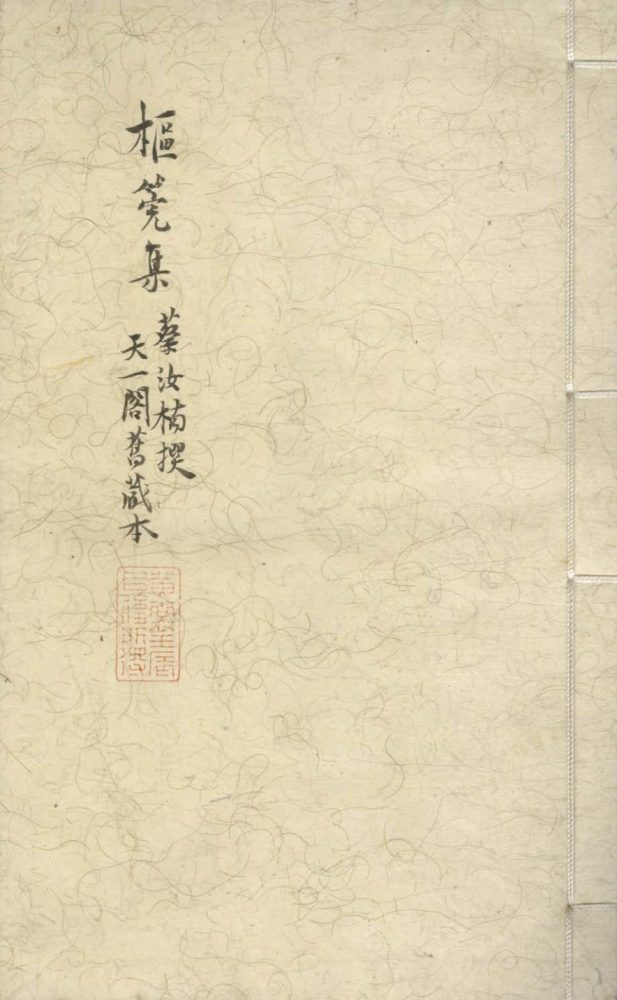 樞筦集
蔡汝楠撰
天一閣舊蔵本